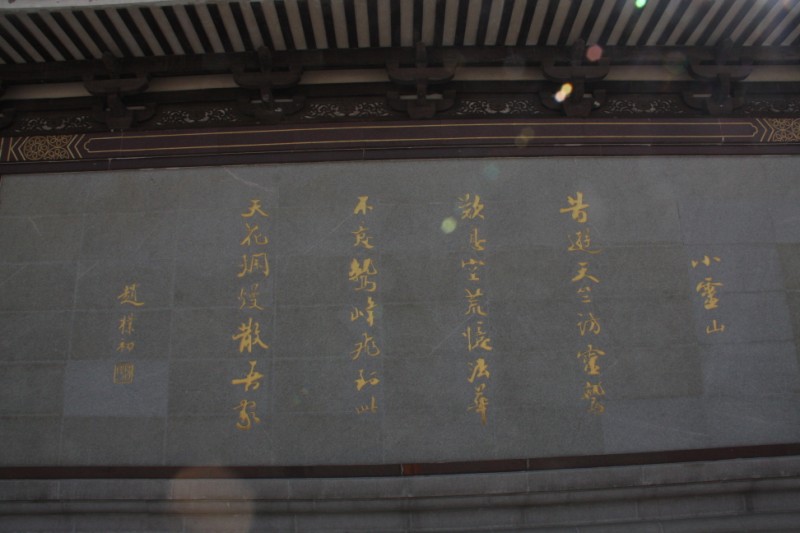 小靈山
昔遊天竺訪靈鷲
歎息空荒憶法華
不意鷲峰飛到此
天花爛熳散吾家
趙樸初